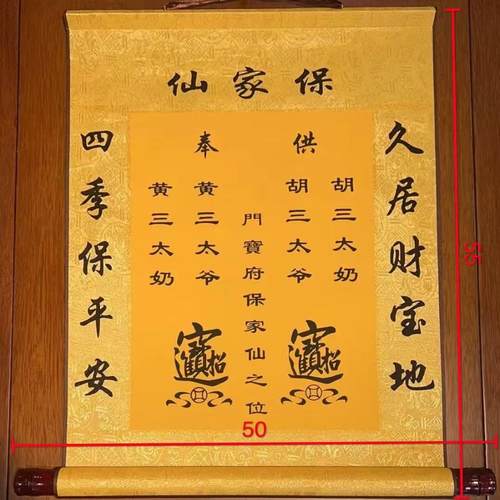 保家仙
久居财宝地
供奉
胡三太奶
胡三太爷
門寶府保家仙之位
黄三太爷
黄三太奶
四季保平安
招財進寶
招財進寶
55
50